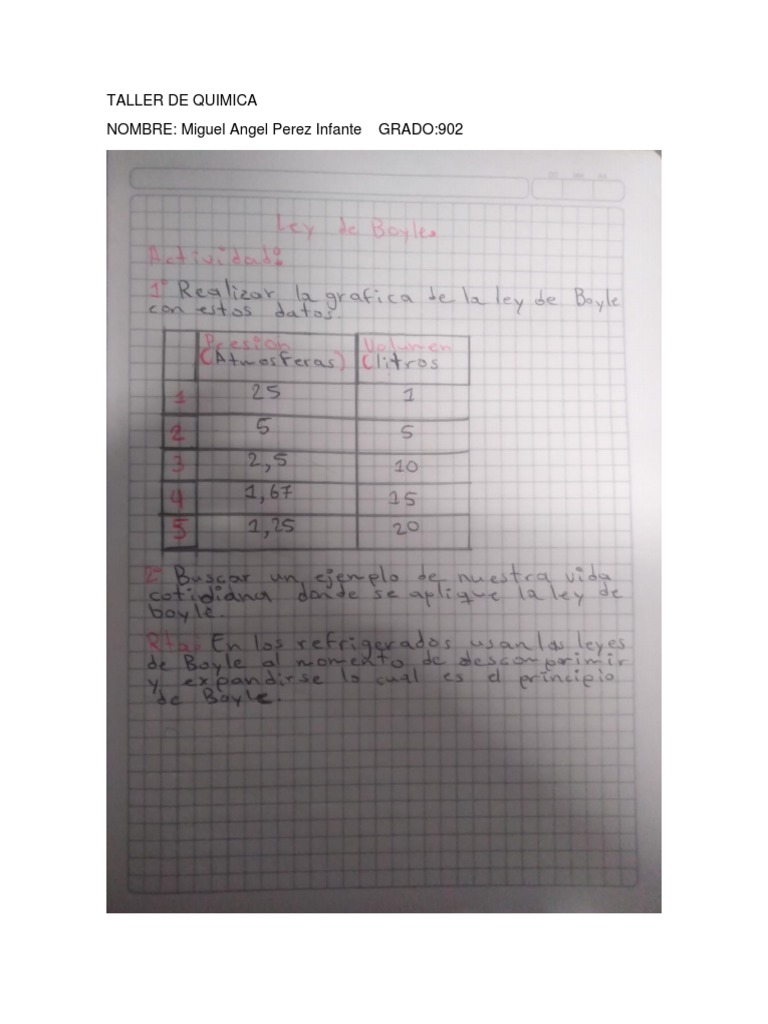 TALLER DE QUIMICA
NOMBRE: Miguel Angel Perez Infante GRADO:902
Ley de Boyle.
Actividad:
1° Realizar la grafica de la ley de Boyle
con estos datos.
Presion Volumen
(Atmosferas) (litros
1 25 1
2 5 5
3 2,5 10
4 1,67 15
5 1,25 20
2° Buscar un ejemplo de nuestra vida
cotidiana donde se aplique la ley de
boyle.
Rta: En los refrigerados usan las leyes
de Boyle al momento de descomprimir
y expandirse lo cual es el principio
de Boyle.